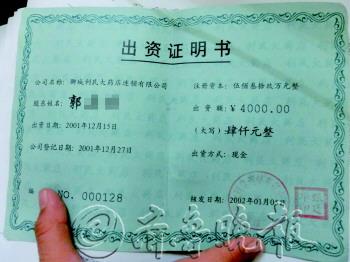 出资证明书
公司名称: 聊城利民大药店连锁有限公司
注册资本: 伍佰叁拾玖万元整
股东姓名: 郭
出资额: ¥4000.00
出资日期: 2001年12月15日
(大写) 肆仟元整
公司登记日期: 2001年12月27日
出资方式: 现金
编 NO. 000128
核发日期: 2002年01月05日
齐鲁晚报